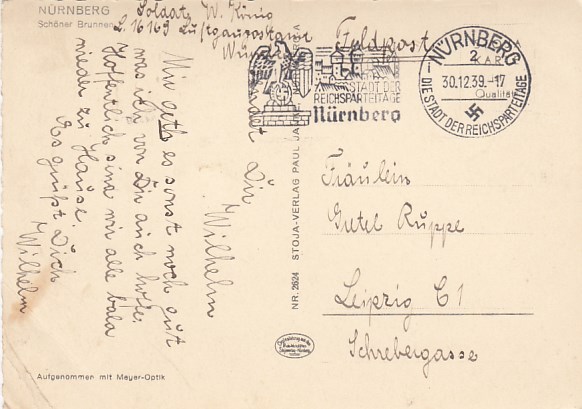 NÜRNBERG
Schöner Brunnen
Soldat W. König
L. 16169 Luftgaupostamt
Feldpost
STADT DER
REICHSPARTEITAGE
Nürnberg
NÜRNBERG
2
30.12.39.-17
DIE STADT DER REICHSPARTEITAGE
Qualität
Wie geht es sonst noch gut
was ich von Dir auch hoffe,
Hoffentlich sind wir alle bald
wieder zu Hause.
Es grüßt Dich
Wilhelm
Dir
Wilhelm
NR. 2624 STOJA-VERLAG PAUL
Fräulein
Gretel Ruppe
Leipzig C1
Schrebergasse
Aufgenommen mit Meyer-Optik